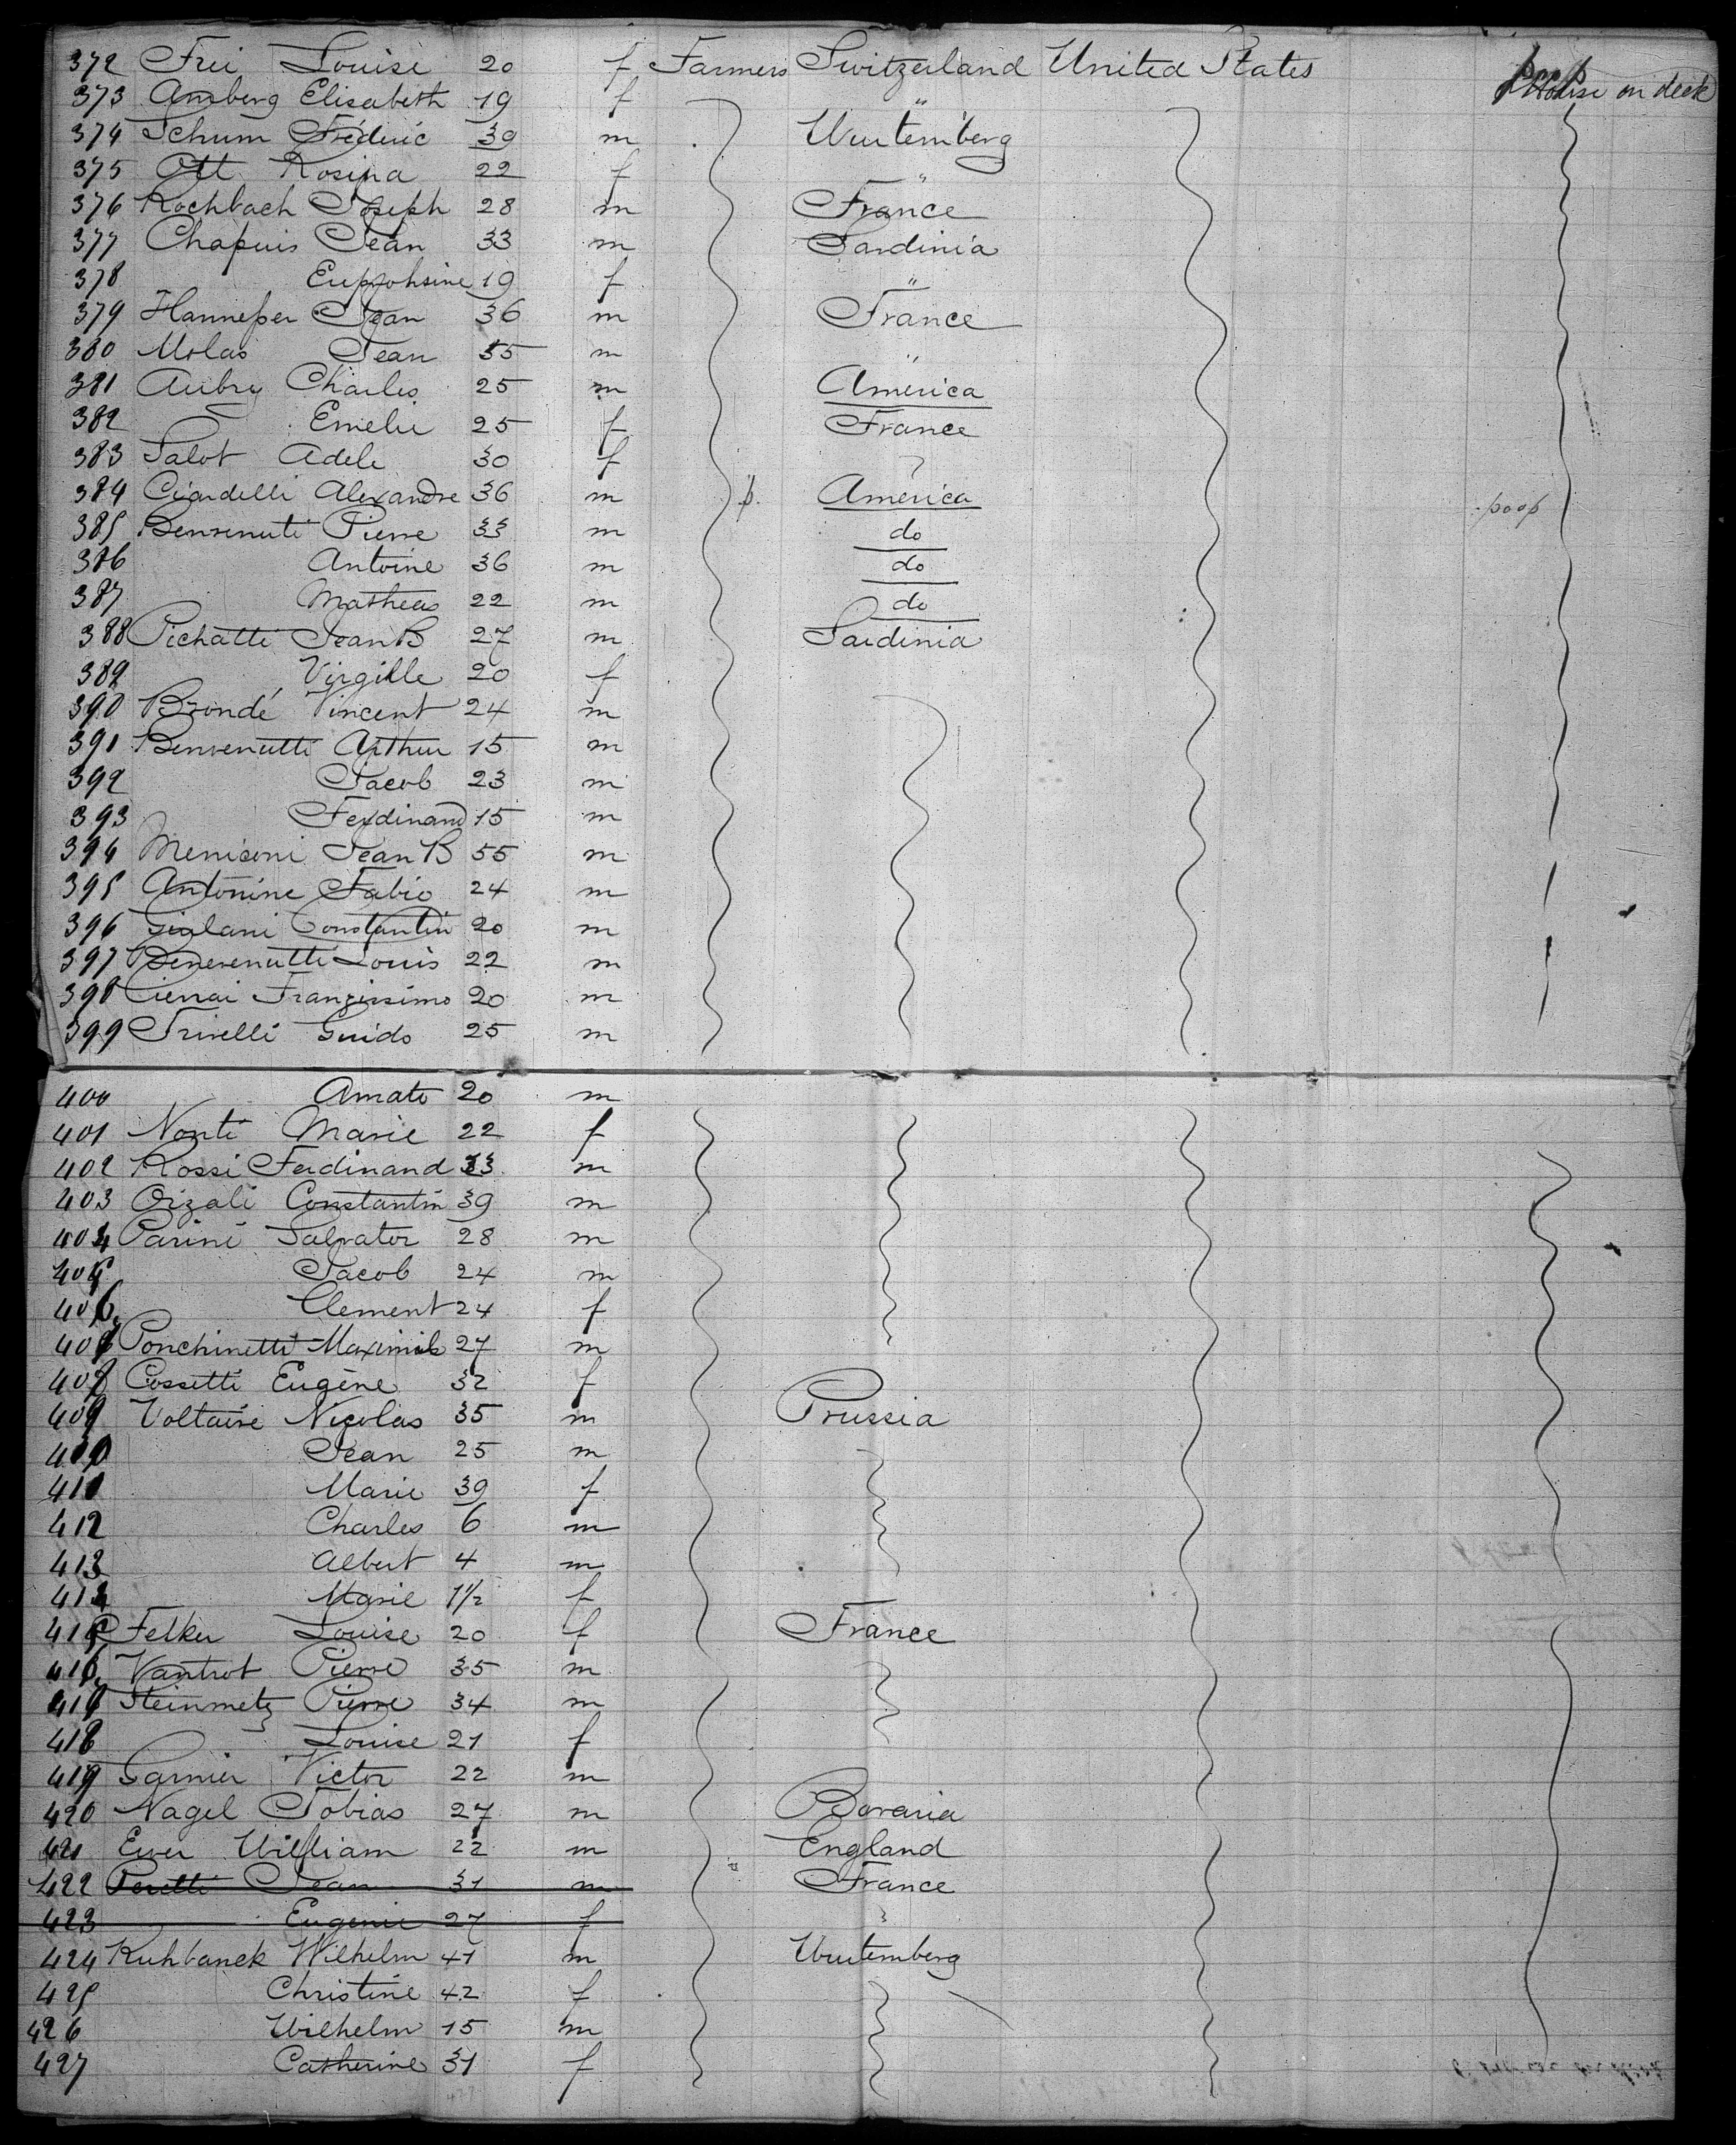 372 Frei Louise 20 f Farmers Switzerland United States House on deck
373 Amberg Elisabeth 19 f "
374 Schum Fréderic 39 m Wurtemberg
375 Ott Rosina 22 f "
376 Rochbach Joseph 28 m France
377 Chapuis Jean 33 m Sardinia
378 Euprohsine 19 f "
379 Hannesser Jean 36 m France
380 Molas Jean 55 m "
381 Aubry Charles 25 m America
382 Emelie 25 f France
383 Salot Adele 30 f
384 Cigardelli Alexandre 36 m p. America poop
385 Benvenuti Pierre 33 m do
386 Antoine 36 m do
387 Matheas 22 m do
388 Pichatti Jean B 27 m Sardinia
389 Virgille 20 f
390 Brondé Vincent 24 m
391 Benvenutti Arthur 15 m
392 Jacob 23 m
393 Ferdinand 15 m
394 Meniconi Jean B 55 m
395 Antonine Fabio 24 m
396 Giulani Constantin 20 m
397 Benevenutti Louis 22 m
398 Pierrai Franzissimo 20 m
399 Trivelli Guido 25 m
400 Amato 20 m
401 Nonti Marie 22 f
402 Rossi Ferdinand 33 m
403 Orzali Constantin 39 m
404 Parini Salvator 28 m
405 Jacob 24 m
406 Clement 24 f
407 Ponchinetti 27 m
408 Cossetti Eugène 32 f
409 Voltaire Nicolas 35 m Prussia
410 Jean 25 m
411 Marie 39 f
412 Charles 6 m
413 Albert 4 m
414 Marie 1½ f
415 Felker Louise 20 f France
416 Vantrot Pierre 35 m
417 Steinmetz Pierre 34 m
418 Louise 21 f
419 Garnier Victor 22 m
420 Nagel Tobias 27 m Bavaria
421 Ewer William 22 m England
422 Peretti Jean 31 m France
423 Eugenie 27 f
424 Kuhbanek Wilhelm 41 m Wurtemberg
425 Christine 42 f
426 Wilhelm 15 m
427 Catherine 31 f